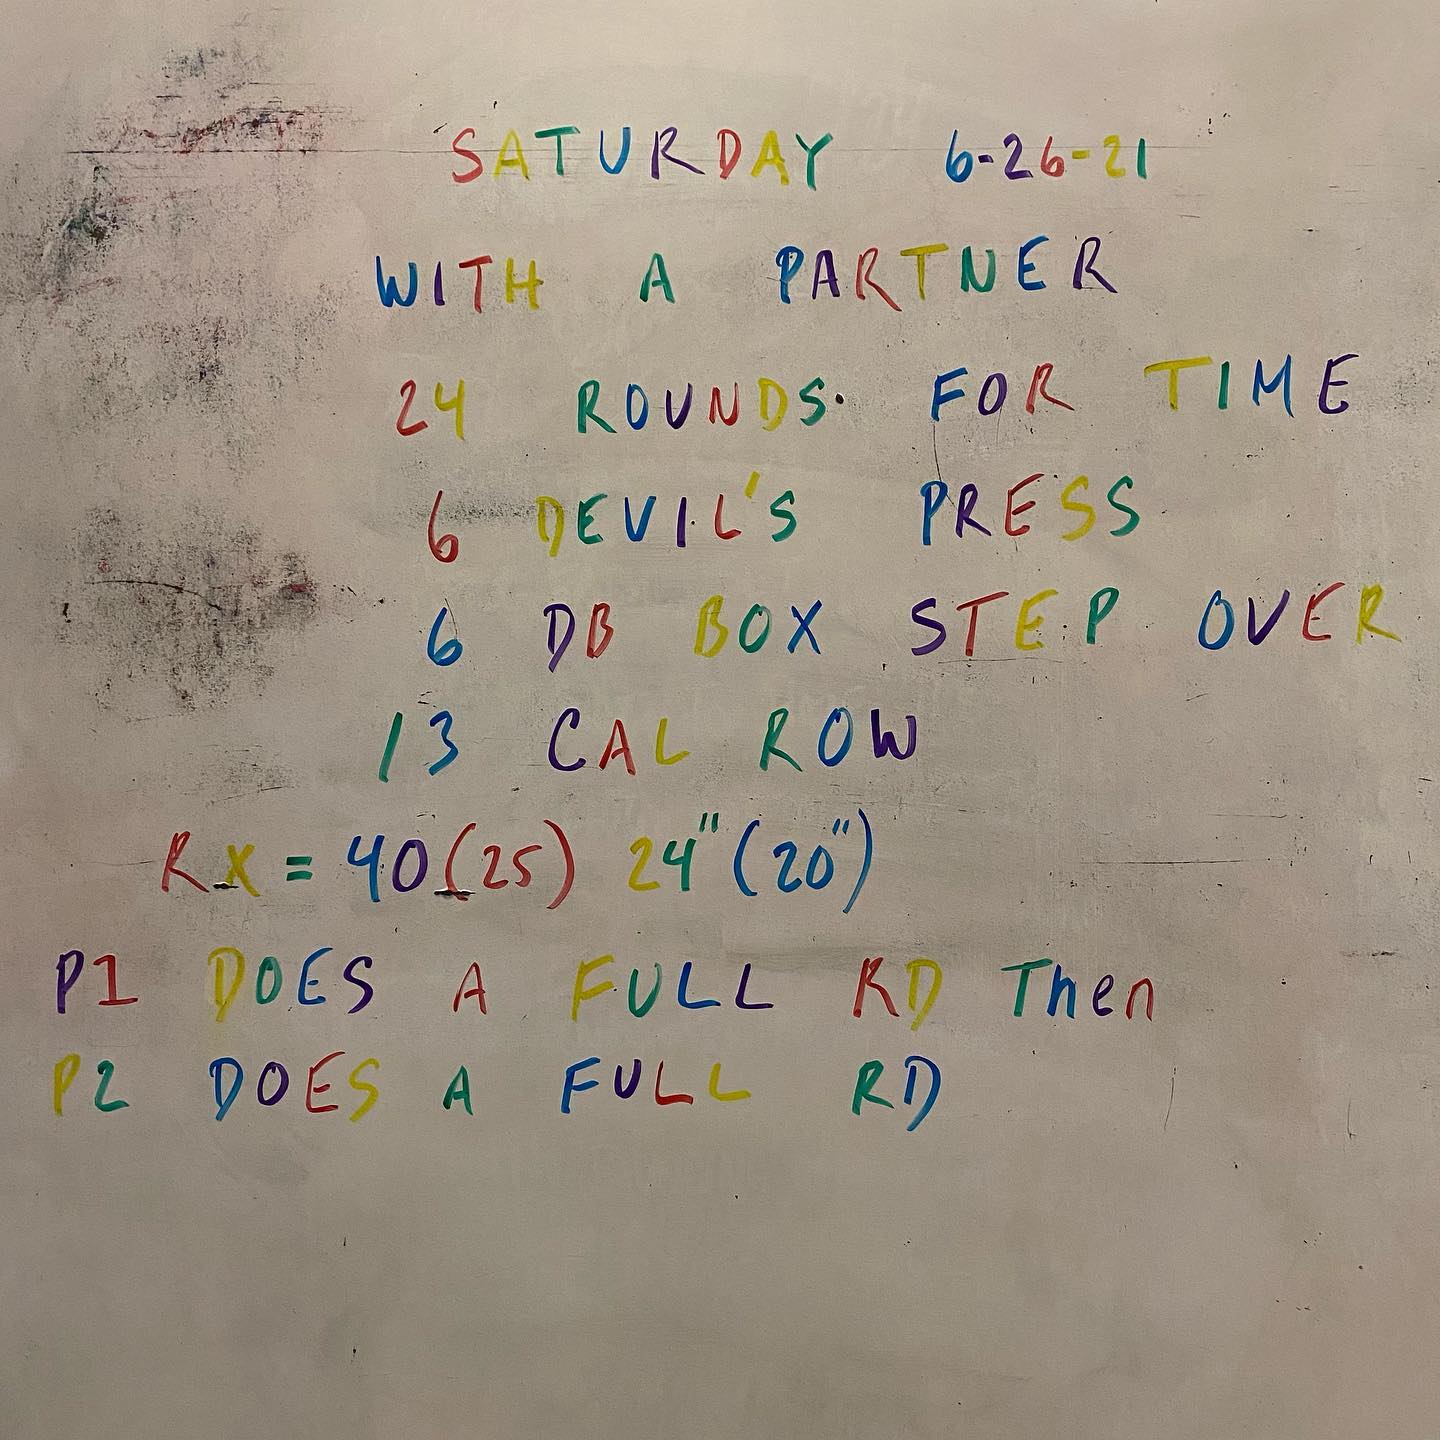 SATURDAY 6-26-21
WITH A PARTNER
24 ROUNDS FOR TIME
6 DEVIL'S PRESS
6 DB BOX STEP OVER
13 CAL ROW
RX = 40(25) 24"(20")
P1 DOES A FULL RD Then
P2 DOES A FULL RD